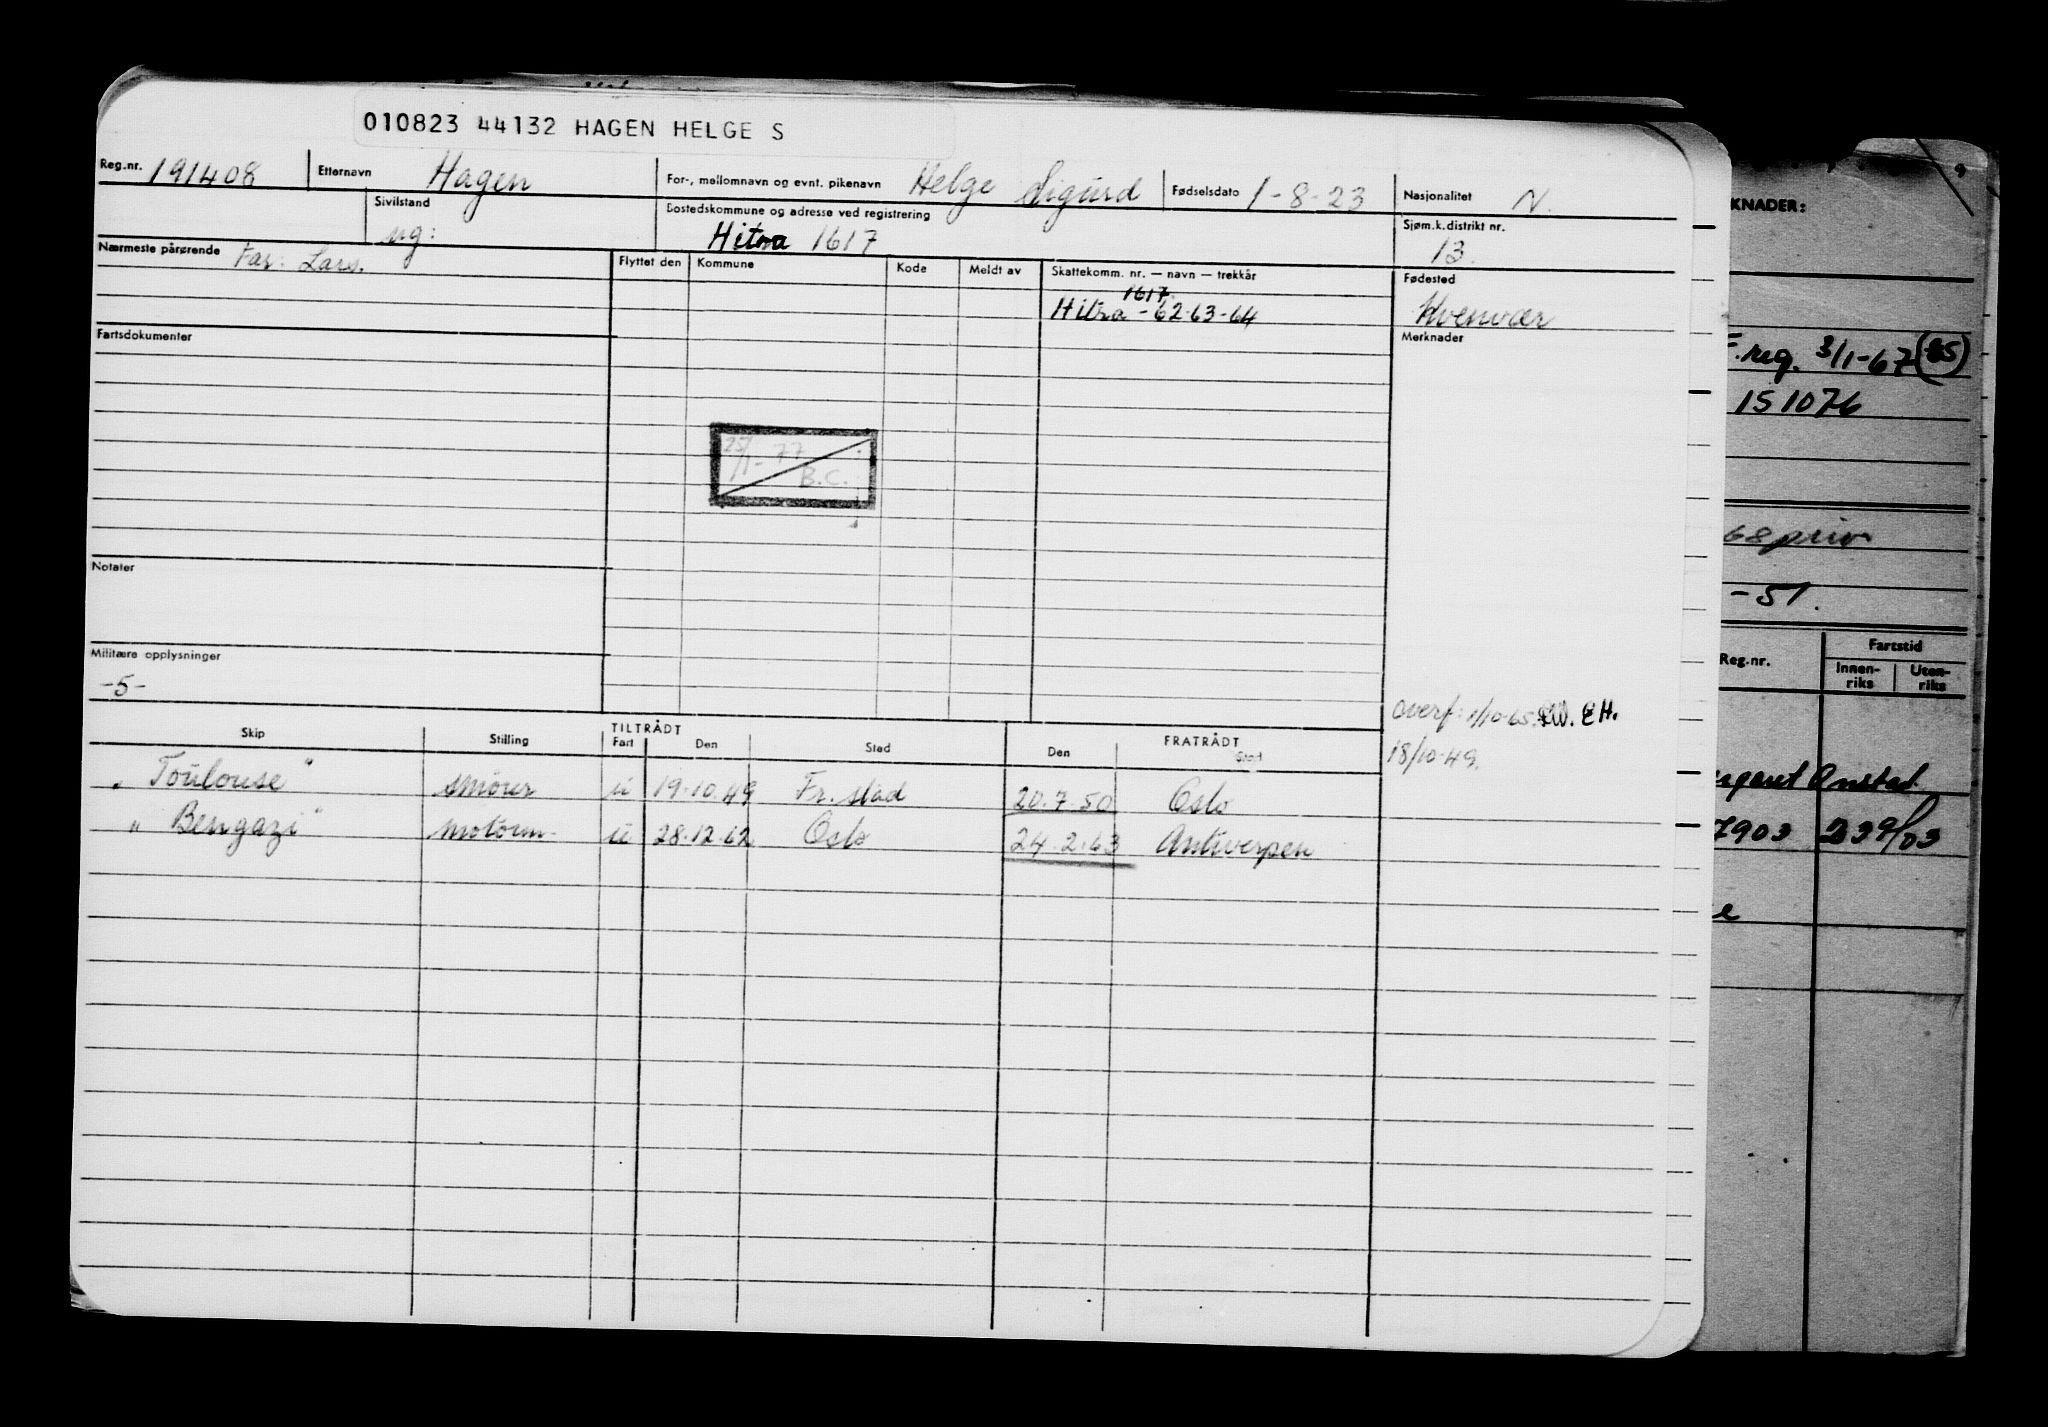 010823 44132 HAGEN HELGE S
Reg.nr. 191408 Etternavn Hagen For-, mellomnavn og evnt. pikenavn Helge Sigurd Fødselsdato 1-8-23 Nasjonalitet N.
Sivilstand ug: Bostedskommune og adresse ved registrering Hitra 1617 Sjøm.k.distrikt nr. 13.
Nærmeste pårørende Far: Lars. Flyttet den Kommune Kode Meldt av Skattekomm. nr. — navn — trekkår Fødested
1617
Hitra - 62-63-64 Kvenvær
Fartsdokumenter Merknader
25/1-77
B.C.
Notater
Militære opplysninger
-5-
overf: 1/10-65. EH.
18/10-49.
Skip Stilling TILTRÅDT Fart Den Sted FRATRÅDT Den Sted
"Toulouse" smører u 19.10.49 Fr.stad 20.7.50 Oslo
"Bengazi" motorm. u 28.12.62 Oslo 24.2.63 Antwerpen
KNADER:
reg. 3/1-67 (65)
151076
68 priv
-51.
Reg.nr. Fartstid
Innen-riks Uten-riks
Onstad
7903 239/03
e